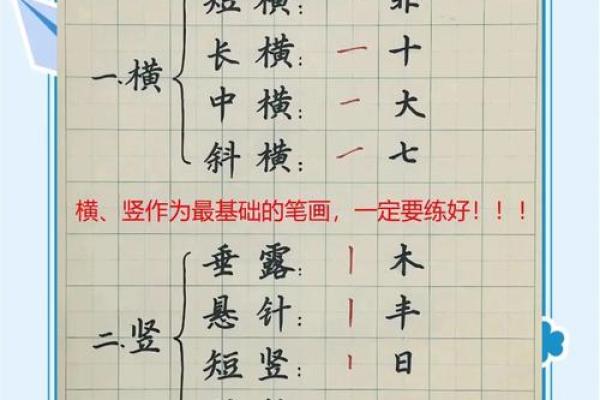 短横：一非
长横：一十
一.横
中横：一大
斜横：一七
横、竖作为最基础的笔画，一定要练好！！！
垂露：丨木
悬针：丨丰
二.竖
短竖：丨日